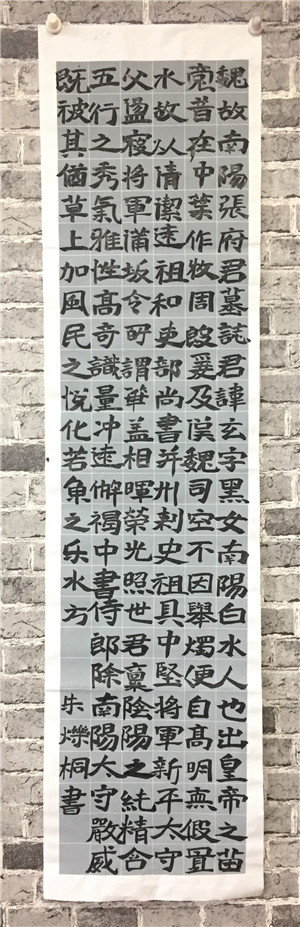 魏故南陽張府君墓誌君諱玄字黑女南陽白水人也出皇帝之苗
裔昔在中葉作牧周殷爰及漢魏司空不因舉燭便自高明無假置
水故以清潔遠祖和吏部尚書并州刺史祖具中堅將軍新平太守
父盪寇將軍蒲坂令所謂華蓋相暉榮光照世君稟陰陽之純精含
五行之秀氣雅性高奇識量冲遠解褐中書侍郎除南陽太守嚴威
既被其猶草上加風民之悅化若魚之乐水方
朱爍桐書